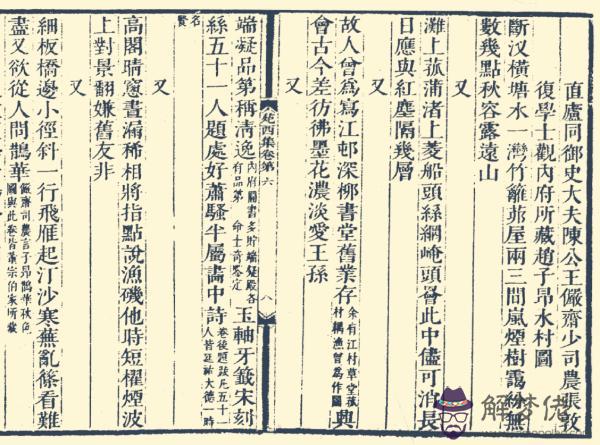 直廬同御史大夫陳公王儼齋少司農張敦
復學士觀內府所藏趙子昂水村圖
斷汊橫塘水一灣竹籬茆屋兩三間嵐煙樹靄紛無
數幾點秋容露遠山
又
灘上菰蒲渚上菱船頭絲網崦頭罾此中儘可消長
日應與紅塵隔幾層
又
故人曾爲寫江邨深栁書堂舊業存余有江村草堂蓀村耦漁曾爲作圖興
會古今差彷彿墨花濃淡愛王孫
又
苑西集卷第六
八
端凝品第稱清逸內府圖書多貯端凝殿各有品第 命士奇鑒定玉軸牙籤宋刻
絲五十一人題處好蕭騷半屬畵中詩卷後題跋凡五十一人皆延祐大德一時
名賢
又
高閣晴窻晝漏稀相將指點說漁磯他時短櫂煙波
上對景翻嫌舊友非
又
細板橋邊小徑斜一行飛雁起汀沙寒蕪亂篠看難
盡又欲從人問鵲華儼齋司農言子昂鵲華秋色圖與此卷皆蕭宗伯家所藏
解梦佬